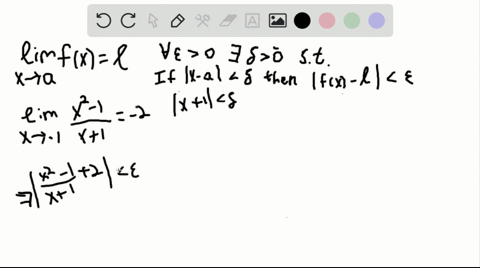 lim f(x) = l   ∀ε>0 ∃ δ>0 s.t.
x→a   If |x-a|<δ then |f(x)-l|<ε
lim x²-1/x+1 = -2   |x+1|<δ
x→-1
⇒|x²-1/x+1 + 2|<ε